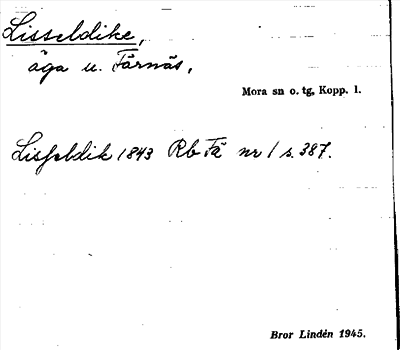 Lisseldike,
äga u. Färnäs,
Mora sn o. tg, Kopp. l.
Lisseldik 1843 Rb Fä nr 1 s. 387.
Bror Lindén 1945.